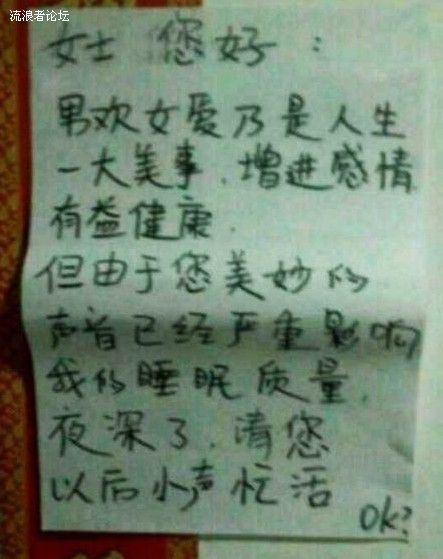 流浪者论坛
女士 您好：
男欢女爱乃是人生
一大美事.增进感情
有益健康.
但由于您美妙的
声音已经严重影响
我的睡眠质量.
夜深了.请您
以后小声忙活
OK?